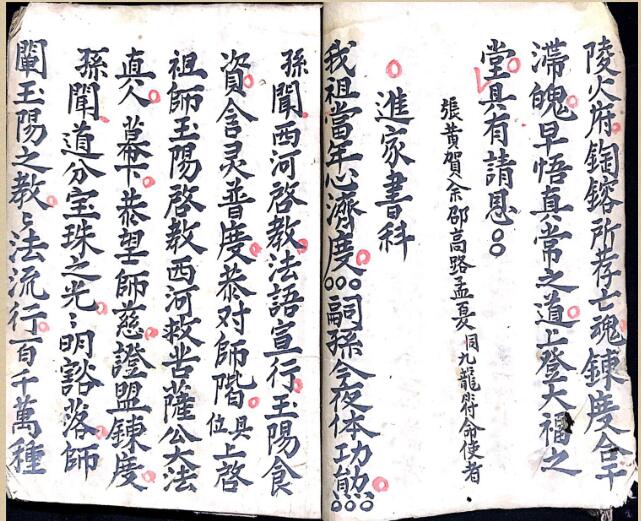 陵火府鍧鎔所荐亡魂鍊度合干
滞魄早悟真常之道上登大福之
堂具有請恩
張黄賀余邵高路孟夏同九龍符命使者
進家書科
我祖當年心濟度嗣孫今夜体功勲
孫聞西河啓教法語宣行玉陽食
資含灵普度恭对師階具位上啓
祖師玉陽啓教西河救苦薩公大法
真人幕下恭望師慈證盟鍊度
孫聞道分宝珠之光〻明谿落師
闡玉陽之教〻法流行百千萬種